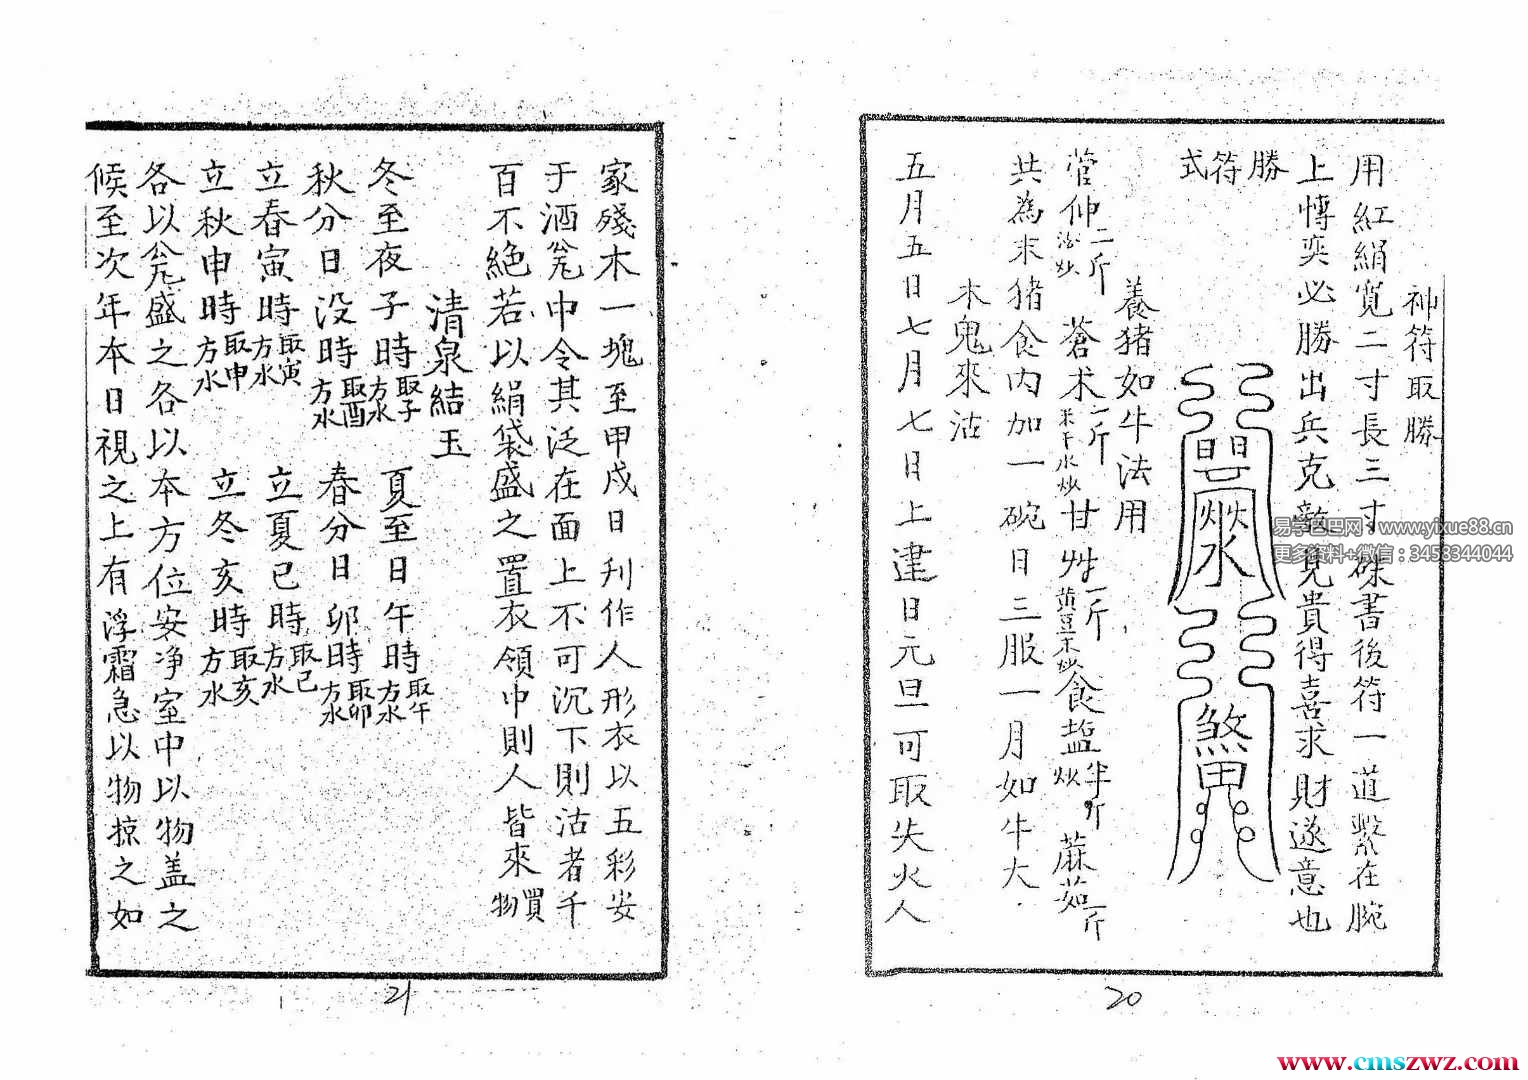 神符取勝
用紅絹寬二寸長三寸硃書後符一道繫在腕
上愽奕必勝出兵克敵見貴得喜求財遂意也
勝符式
養猪如牛法用
菅仲二斤 炒 蒼术二斤 米干水炒 甘艸一斤 黄豆末炒 食盐半斤 炒 蔴茹一斤
共為末猪食内加一碗日三服一月如牛大
木鬼來沽
五月五日七月七日上建日元旦可取失火人
20
家殘木一塊至甲戌日刋作人形衣以五彩安
于酒瓮中令其泛在面上不可沉下則沽者千
百不絶若以絹袋盛之置衣領巾則人皆來買物
清泉結玉
冬至夜子時取子方水 夏至日午時取午方水
秋分日没時取酉方水 春分日卯時取卯方水
立春寅時取寅方水 立夏巳時取巳方水
立秋申時取申方水 立冬亥時取亥方水
各以瓮盛之各以本方位安净室中以物盖之
候至次年本日視之上有浮霜急以物掠之如
21
易学巴巴网：www.yixue88.cn
更多资料+微信：3453344044
www.cmszwz.com